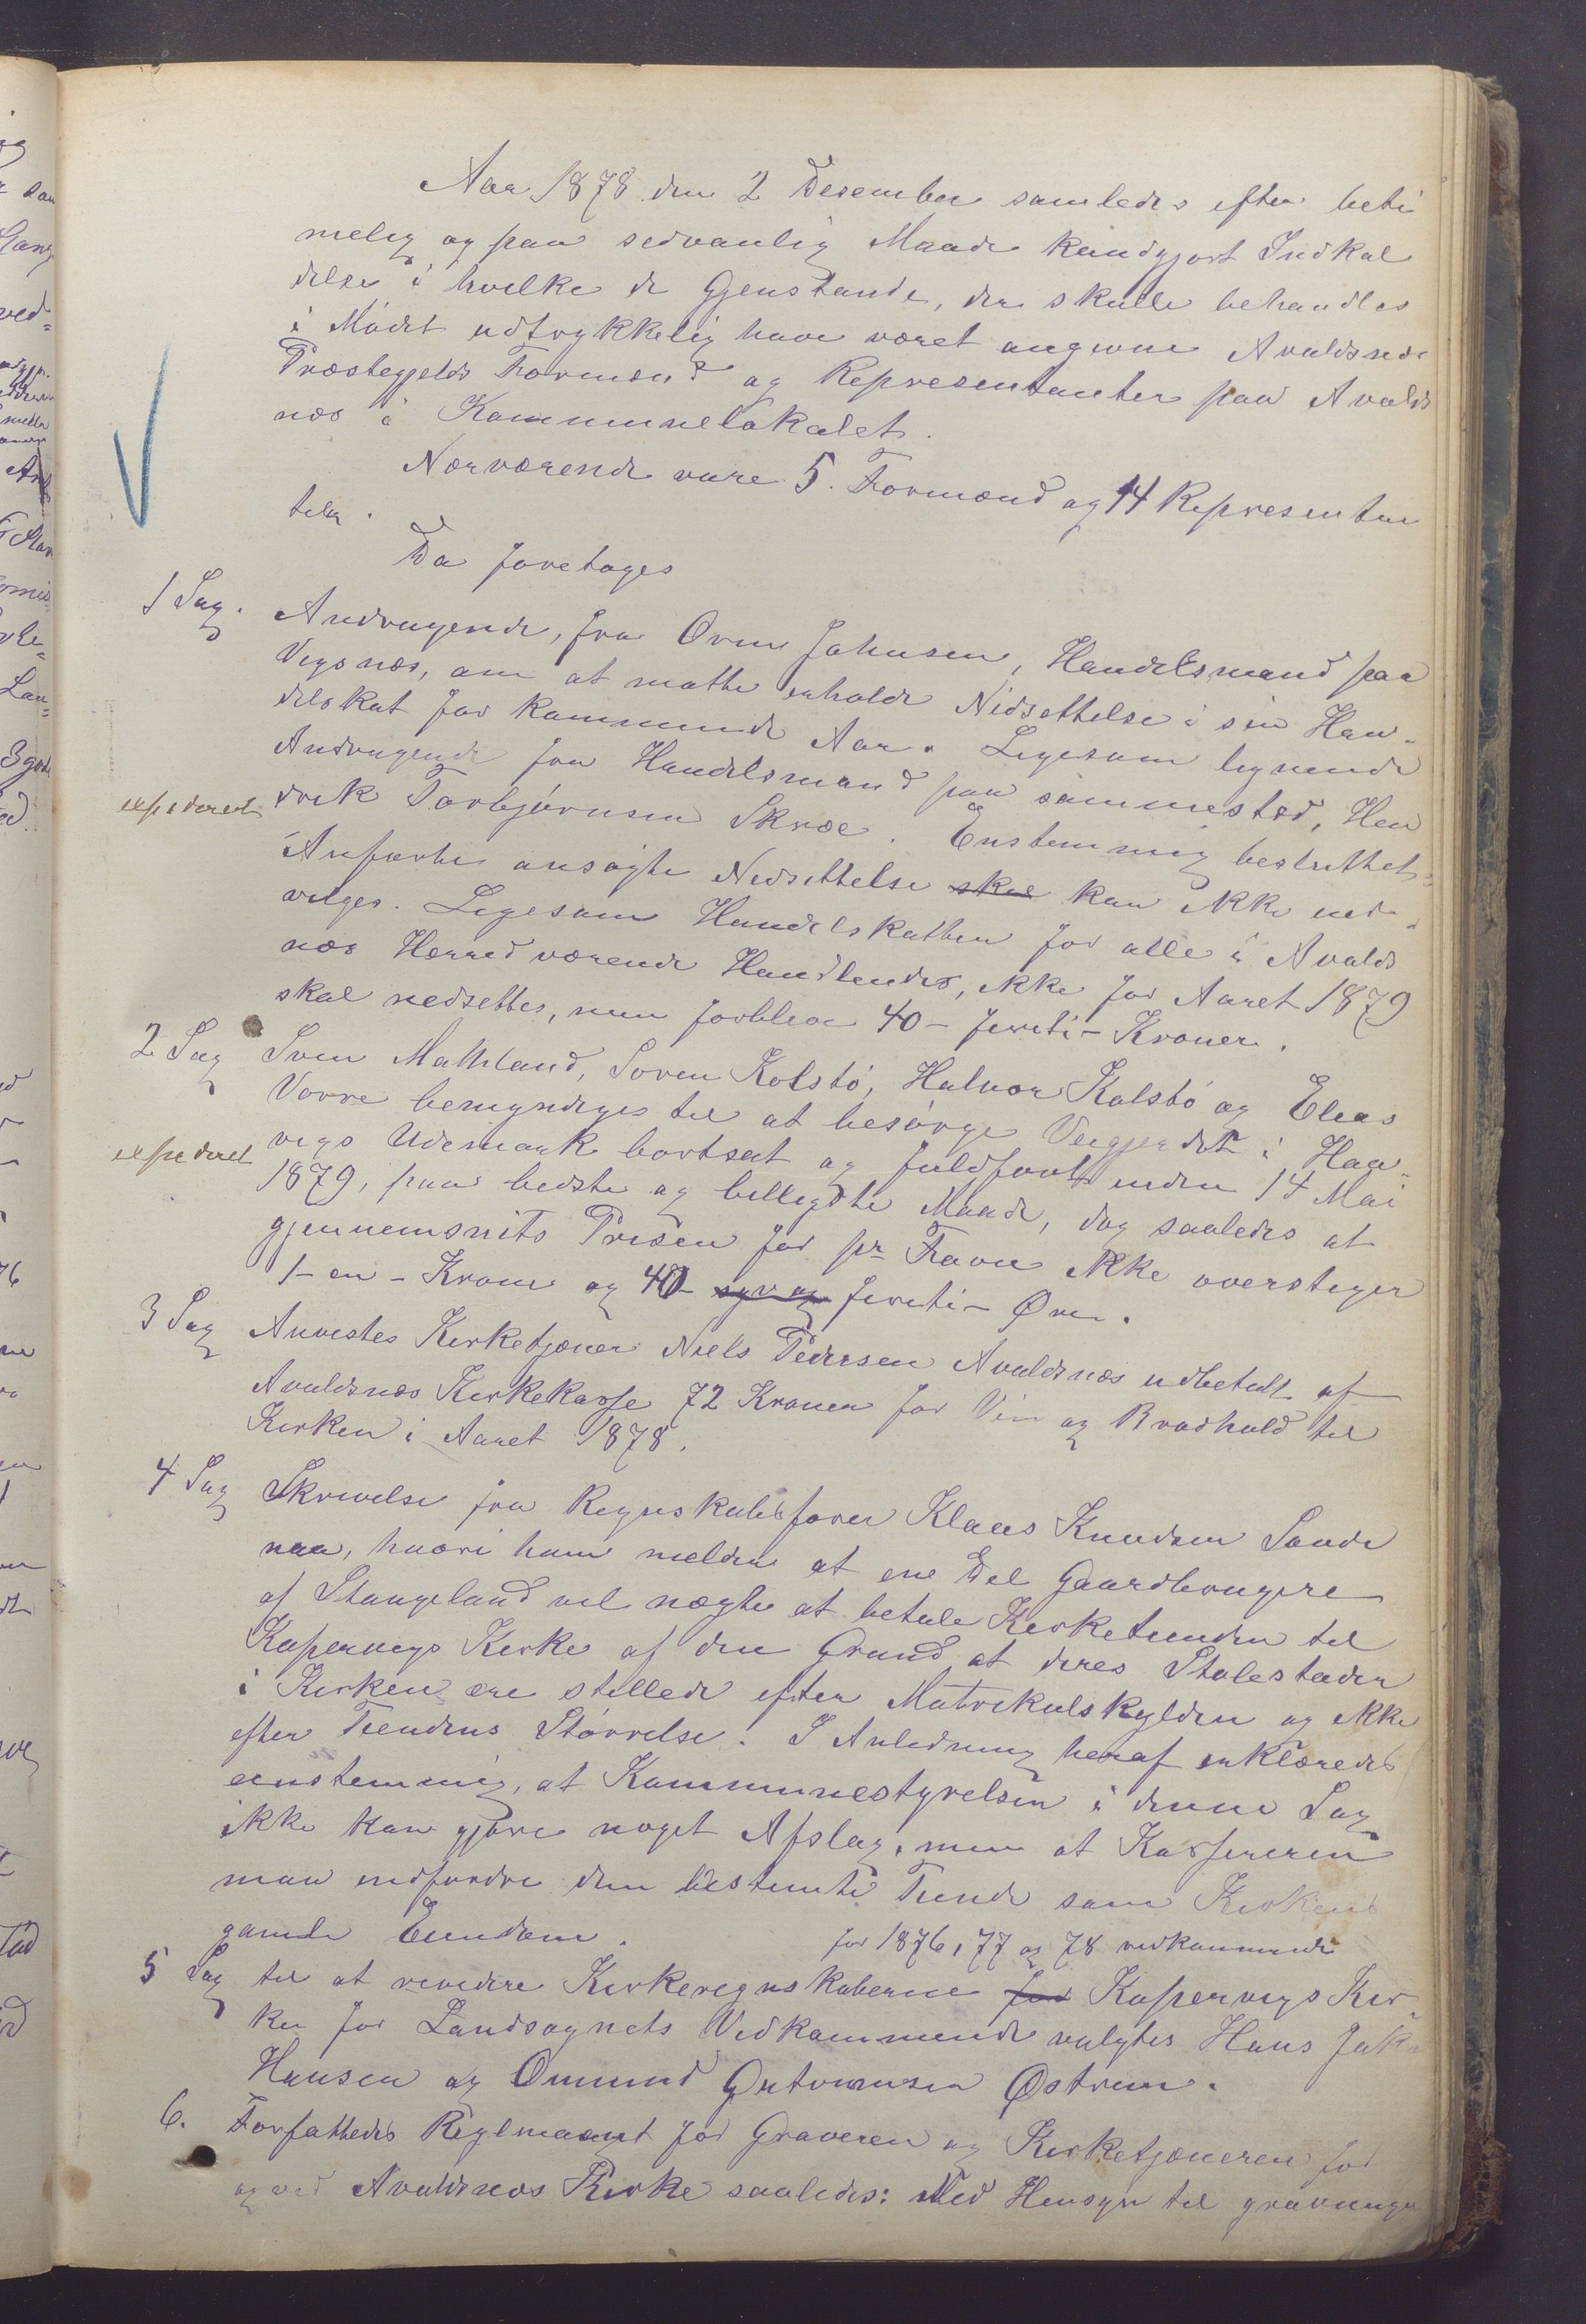 Aar 1878 den 2 Desember samledes efter beti
melig og paa sedvanlig Maade kundgjort Indkal
delse i hvilke de Gjenstande, der skulle behandles
i Mödet udtrykkelig have været angivne Avaldsnæs
Præstegjelds Formænd og Representanter paa Avalds
næs i Kommunelokalet.
Nærværende vare 5. Formænd og 14 Representan
ter.
Da foretoges
1 Sag. Andragende, fra Orm Johnsen, Handelsmand paa
Vigsnæs, om at matte erholde Nidsettelse i sin Han-
delskat for kommende Aar. Ligesom lignende
Andragende fra Handelsmand paa sammested, Hen
expederet drik Torbjørnsen Skræe. Enstemmig besluttet:
Anførte ansøgte Nedsettelse skal kan ikke ind-
vilges. Ligesom Handelskatten for alle i Avalds
næs Herred værende Handlendes, ikke for Aaret 1879
skal nedsettes, men forblive 40 - fireti - Kroner.
2 Sag Sven Mathland, Soren Kolstö, Halvor Kolstö og Elias
Vorre bemyndiges til at besörge Veigjerdet i Haa-
expederet vigs Udemark bortsat og fuldført inden 14 Mai
1879, paa bedste og billigste Maade, dog saaledes at
gjennemsnits Prisen for pr Favn ikke overstiger
1 - en - Krone og 40 - syv og fireti - Øre.
3 Sag Anvistes Kirketjener Niels Pedersen Avaldsnæs udbetalt af
Avaldsnæs Kirkekasse 72 Kroner for Vin og Brødhold til
Kirken i Aaret 1878.
4 Sag Skrivelse fra Regnskabsfører Klaus Knudsen Sande
naa, hvori han melder at ene Del Gaardbrugere
af Stangeland vil nægte at betale Kirketienden til
Kopervigs Kirke af den Grund at deres Stolestader
i Kirken ere stillede efter Matrikulskylden og ikke
efter Tiendens Störrelse. I Anledning heraf erklæredes
eenstemmig, at Kommunestyrelsen i denne Sag
ikke kan gjöre noget Afslag, men at Kassereren
maa indfordre den bestemte Tiende som Kirkens
gamle Eiendom.
for 1876, 77 og 78 vedkommende
5 Sag til at revidere Kirkeregnskaberne for Kopervigs Kir-
ke for Landsognets Vedkommende valgtes Hans Jak
Hansen og Ommund Guttormsen Østrem.
6. Forfattedes Reglmaangt for Graveren og Kirketjæneren for
og ved Avaldsnæs Kirke saaledes: Med Hensyn til gravninge